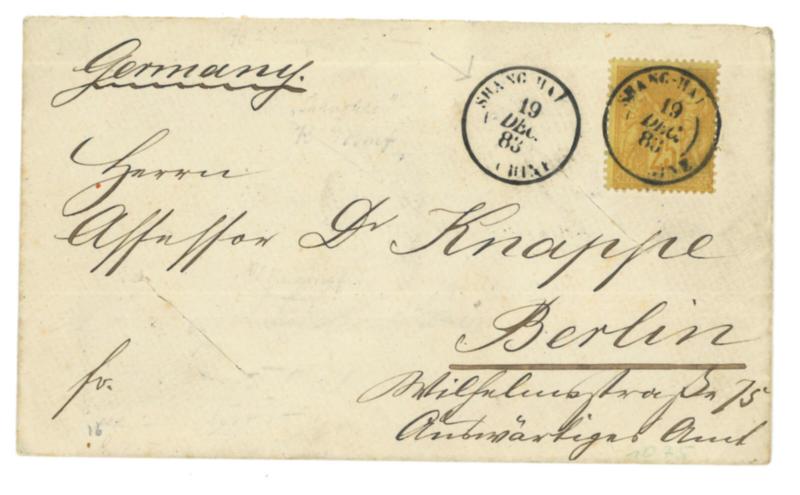 Germany.
SHANG-HAI
19
DEC.
83
CHINE
SHANG-HAI
19
DEC.
83
CHINE
25
Herrn
Assessor Dr Knappe
Berlin
fr.
Wilhelmsstraße 75
Auswärtiges Amt
16